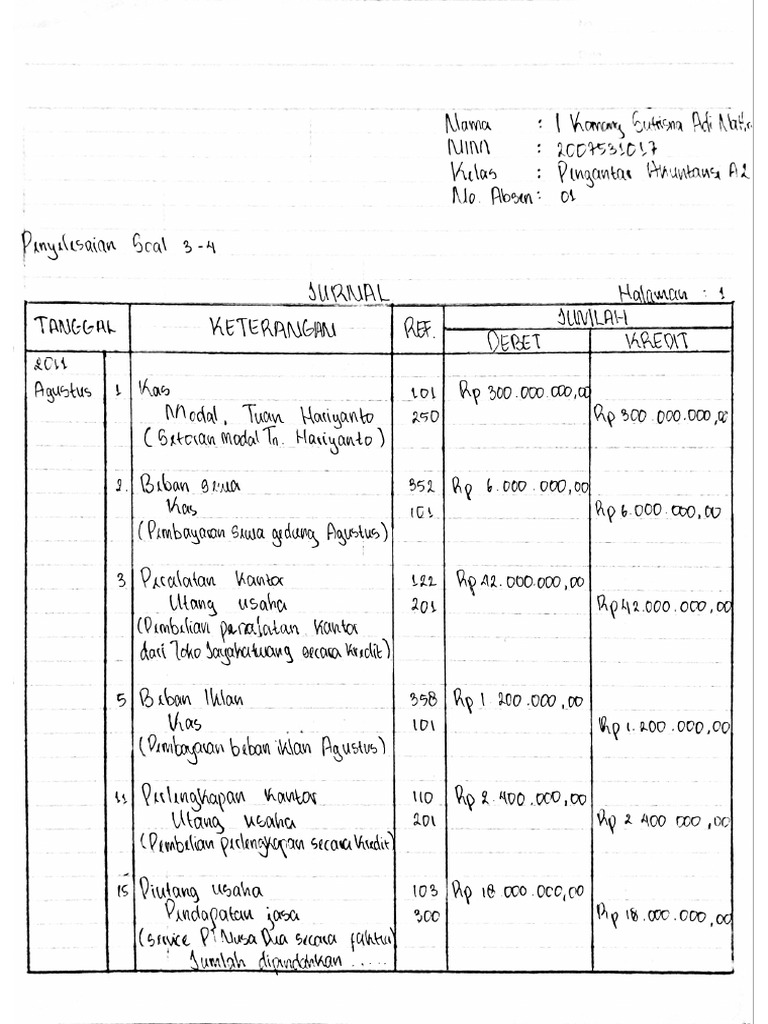 Nama : I Komang Sutrisna Adi
NIM : 2007531017
Kelas : Pengantar Akuntansi A2
No. Absen : 01
Penyelesaian Soal 3-4
JURNAL Halaman : 1
TANGGAL KETERANGAN REF. JUMLAH
DEBET KREDIT
2011
Agustus 1 Kas 101 Rp 300.000.000,00
Modal, Tuan Hariyanto 250 Rp 300.000.000,00
(Setoran modal Tn. Hariyanto)
2. Beban sewa 352 Rp 6.000.000,00
Kas 101 Rp 6.000.000,00
(Pembayaran sewa gedung Agustus)
3 Peralatan kantor 122 Rp 42.000.000,00
Utang usaha 201 Rp 42.000.000,00
(Pembelian peralatan kantor
dari Toko secara kredit)
5 Beban Iklan 358 Rp 1 200.000,00
Kas 101 Rp 1.200.000,00
(Pembayaran beban iklan Agustus)
11 Perlengkapan kantor 110 Rp 2.400.000,00
Utang usaha 201 Rp 2 400 000,00
(Pembelian perlengkapan secara kredit)
15 Piutang usaha 103 Rp 18.000.000,00
Pendapatan jasa 300 Rp 18.000.000,00
(Service PT Nusa Dua secara faktur)
Jumlah dipindahkan .....